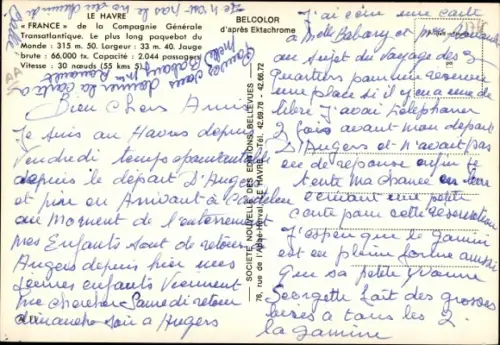 LE HAVRE
« FRANCE » de la Compagnie Générale
Transatlantique. Le plus long paquebot du
Monde : 315 m. 50. Largeur : 33 m. 40. Jauge
brute : 66.000 tx. Capacité : 2.044 passagers
Vitesse : 30 nœuds (55 km)
BELCOLOR
d'après Ektachrome
SOCIÉTÉ NOUVELLE DES EDITIONS BELLEVUES
76, rue de l'Abbé-Herval, LE HAVRE - Tél. 42.69.78 - 42.66.72
Bien Chers Amis
Je suis au Havre depuis
Vendredi temps
depuis le départ D'Angers
et pire en Arrivant à
au Moment de l'enterrement
Mes Enfants sont de retour
Angers depuis hier mes
jeunes enfants Viennent
me chercher Samedi retour
dimanche soir à Angers
J'ai écrit une carte
à Melle Babary et
au sujet du Voyage des 3
Quartiers pour me réserver
une place si il y en a une de
libre J'avai téléphoner
2 fois avant mon départ
D'Angers et n'avait pas
eu de réponse enfin je
tente Ma chance en leur
écrivant une petite
carte pour cette réservation
J'espère que le gamin
est en pleine forme aussi
que sa petite Yvonne
Georgette fait des grosses
bises à tous les 2
la gamine